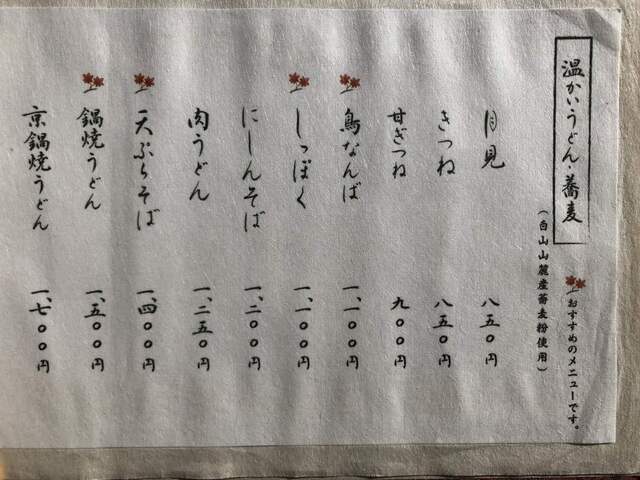 温かいうどん・蕎麦
おすすめのメニューです。
(白山山麓産蕎麦粉使用)
月見 八五〇円
きつね 八五〇円
甘ぎつね 九〇〇円
鳥なんば 一、一〇〇円
しっぽく 一、一〇〇円
にしんそば 一、二〇〇円
肉うどん 一、二五〇円
天ぷらそば 一、四〇〇円
鍋焼うどん 一、五〇〇円
京鍋焼うどん 一、七〇〇円